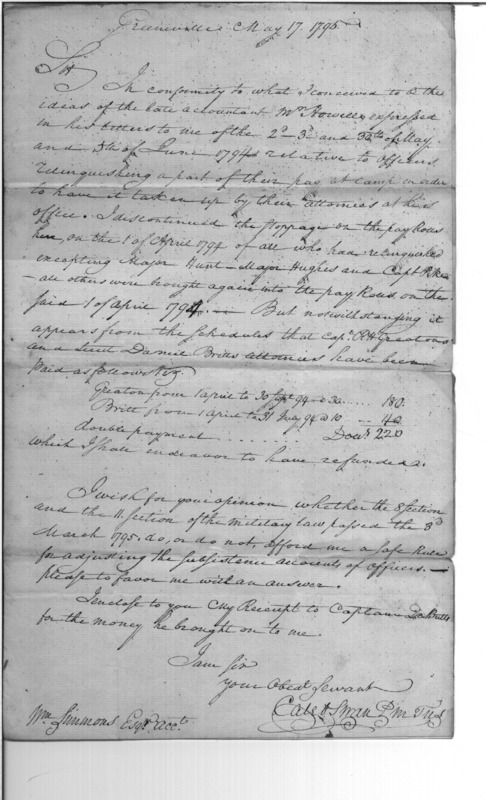 Greenville May 17. 1795
Sir
In conformity to what I conceived to be the
ideas of the late accountant Mr Howell, expressed
in his letters to me of the 2d 3d and 30th of May
and 5th of June 1794 relative to officers
relinquishing a part of their pay at camp in order
to have it taken up by their attornies at his
office. I discontinued the stoppage on the pay Rolls
here, on the 1 of April 1794 of all who had relinquished
excepting Major Hunt - Major Hughes and Capt Pike
- all others were brought again into the pay Rolls on the
said 1 of april 1794. - But notwithstanding it
appears from the schedules that Capt. R H Greatons
and Lieut Daniel Britts attornies have been
Paid as follows Viz.
Greaton from 1 april to 30 Sept 94 @ 30 .... 180.
Britt from 1 april to 31 July 94 @ 10 .. 40
double payment ........ Dolls 220
which I shall endeavor to have refunded.
I wish for your opinion whether the 8 section
and the 11 section of the military law passed the 3d
March 1795. do, or do not, afford me a safe rule
for adjusting the subsistance accounts of officers. -
please to favor me with an answer.
I enclose to you my Receipt to Captain DeButts
for the money he brought on to me.
I am Sir
your Obedt Servant
Caleb Swan P M T U S
Wm Simmons Esqr acct.